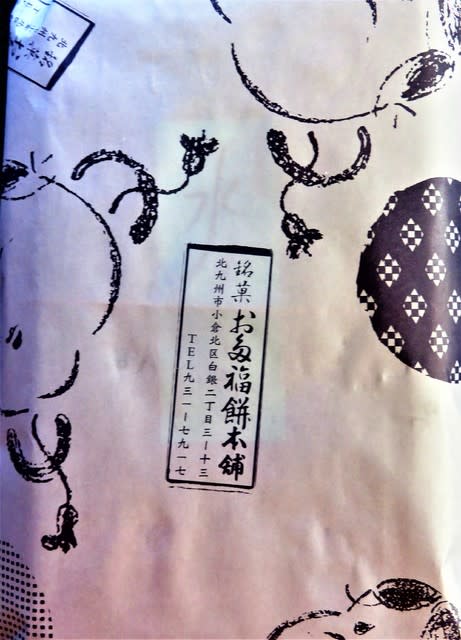 銘菓 お多福餅本舗
北九州市小倉北区白銀二丁目三ー十三
TEL九三一ー七九一七
水